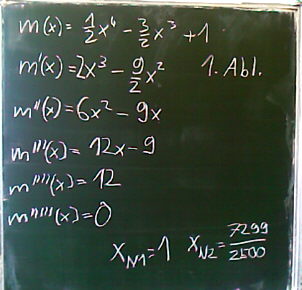 m(x) = 1/2 x⁴ - 3/2 x³ + 1
m'(x) = 2x³ - 9/2 x² 1. Abl.
m''(x) = 6x² - 9x
m'''(x) = 12x - 9
m''''(x) = 12
m'''''(x) = 0
x_N1 = 1 x_N2 = 7299/2500